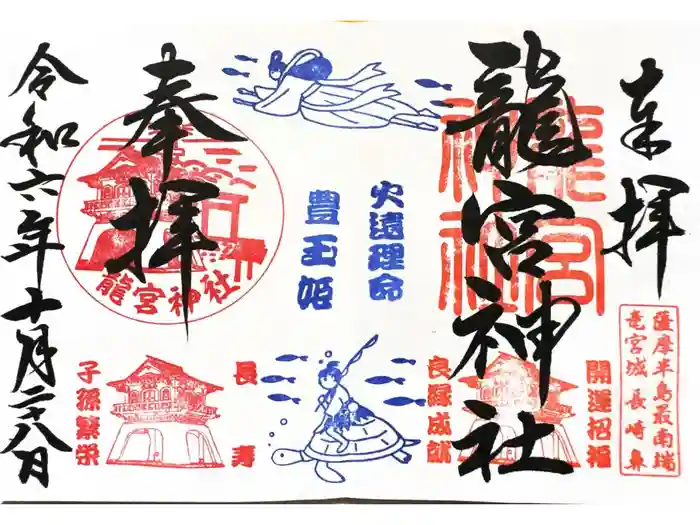 奉拝
薩摩半島最南端
竜宮城 長崎鼻
龍宮神社
龍宮神社
開運招福
良縁成就
火遠理命
豊玉姫
長寿
子孫繁栄
奉拝
龍宮神社
令和六年十月二十八日